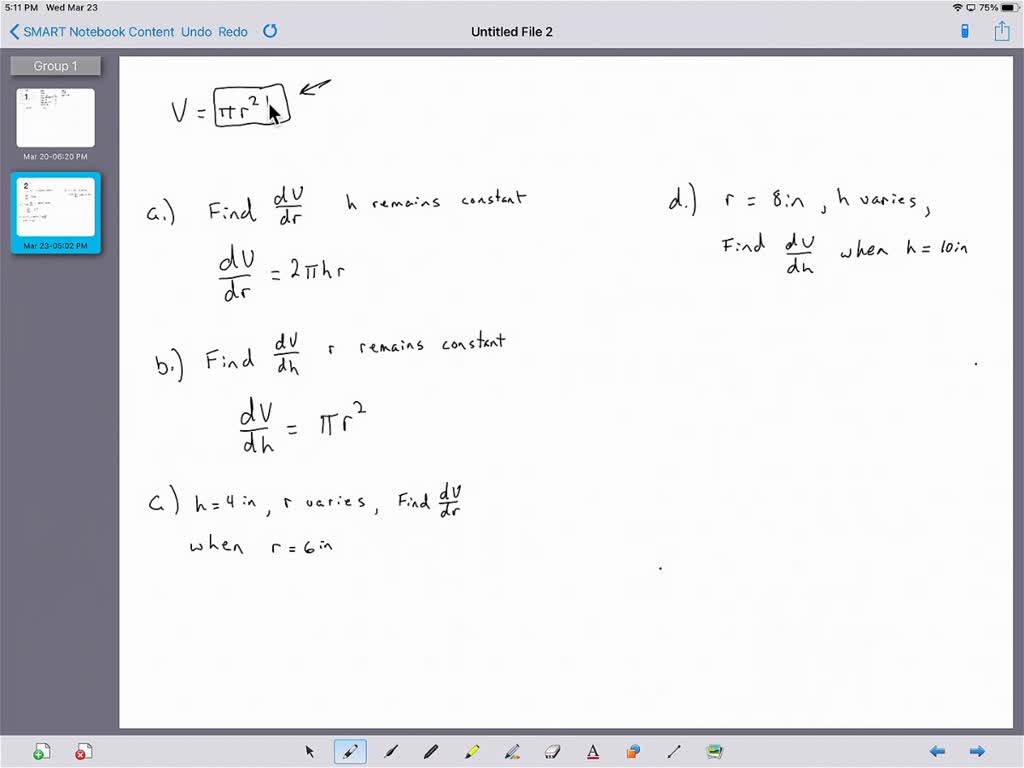 5:11 PM Wed Mar 23
75%
SMART Notebook Content Undo Redo
Untitled File 2
Group 1
1
Mar 20-06:20 PM
2
Mar 23-05:02 PM
V = πr²
a.) Find dV/dr h remains constant
dV/dr = 2πhr
b.) Find dV/dh r remains constant
dV/dh = πr²
c.) h = 4 in, r varies, Find dV/dr
when r = 6 in
d.) r = 8 in, h varies,
Find dV/dh when h = 10 in
A